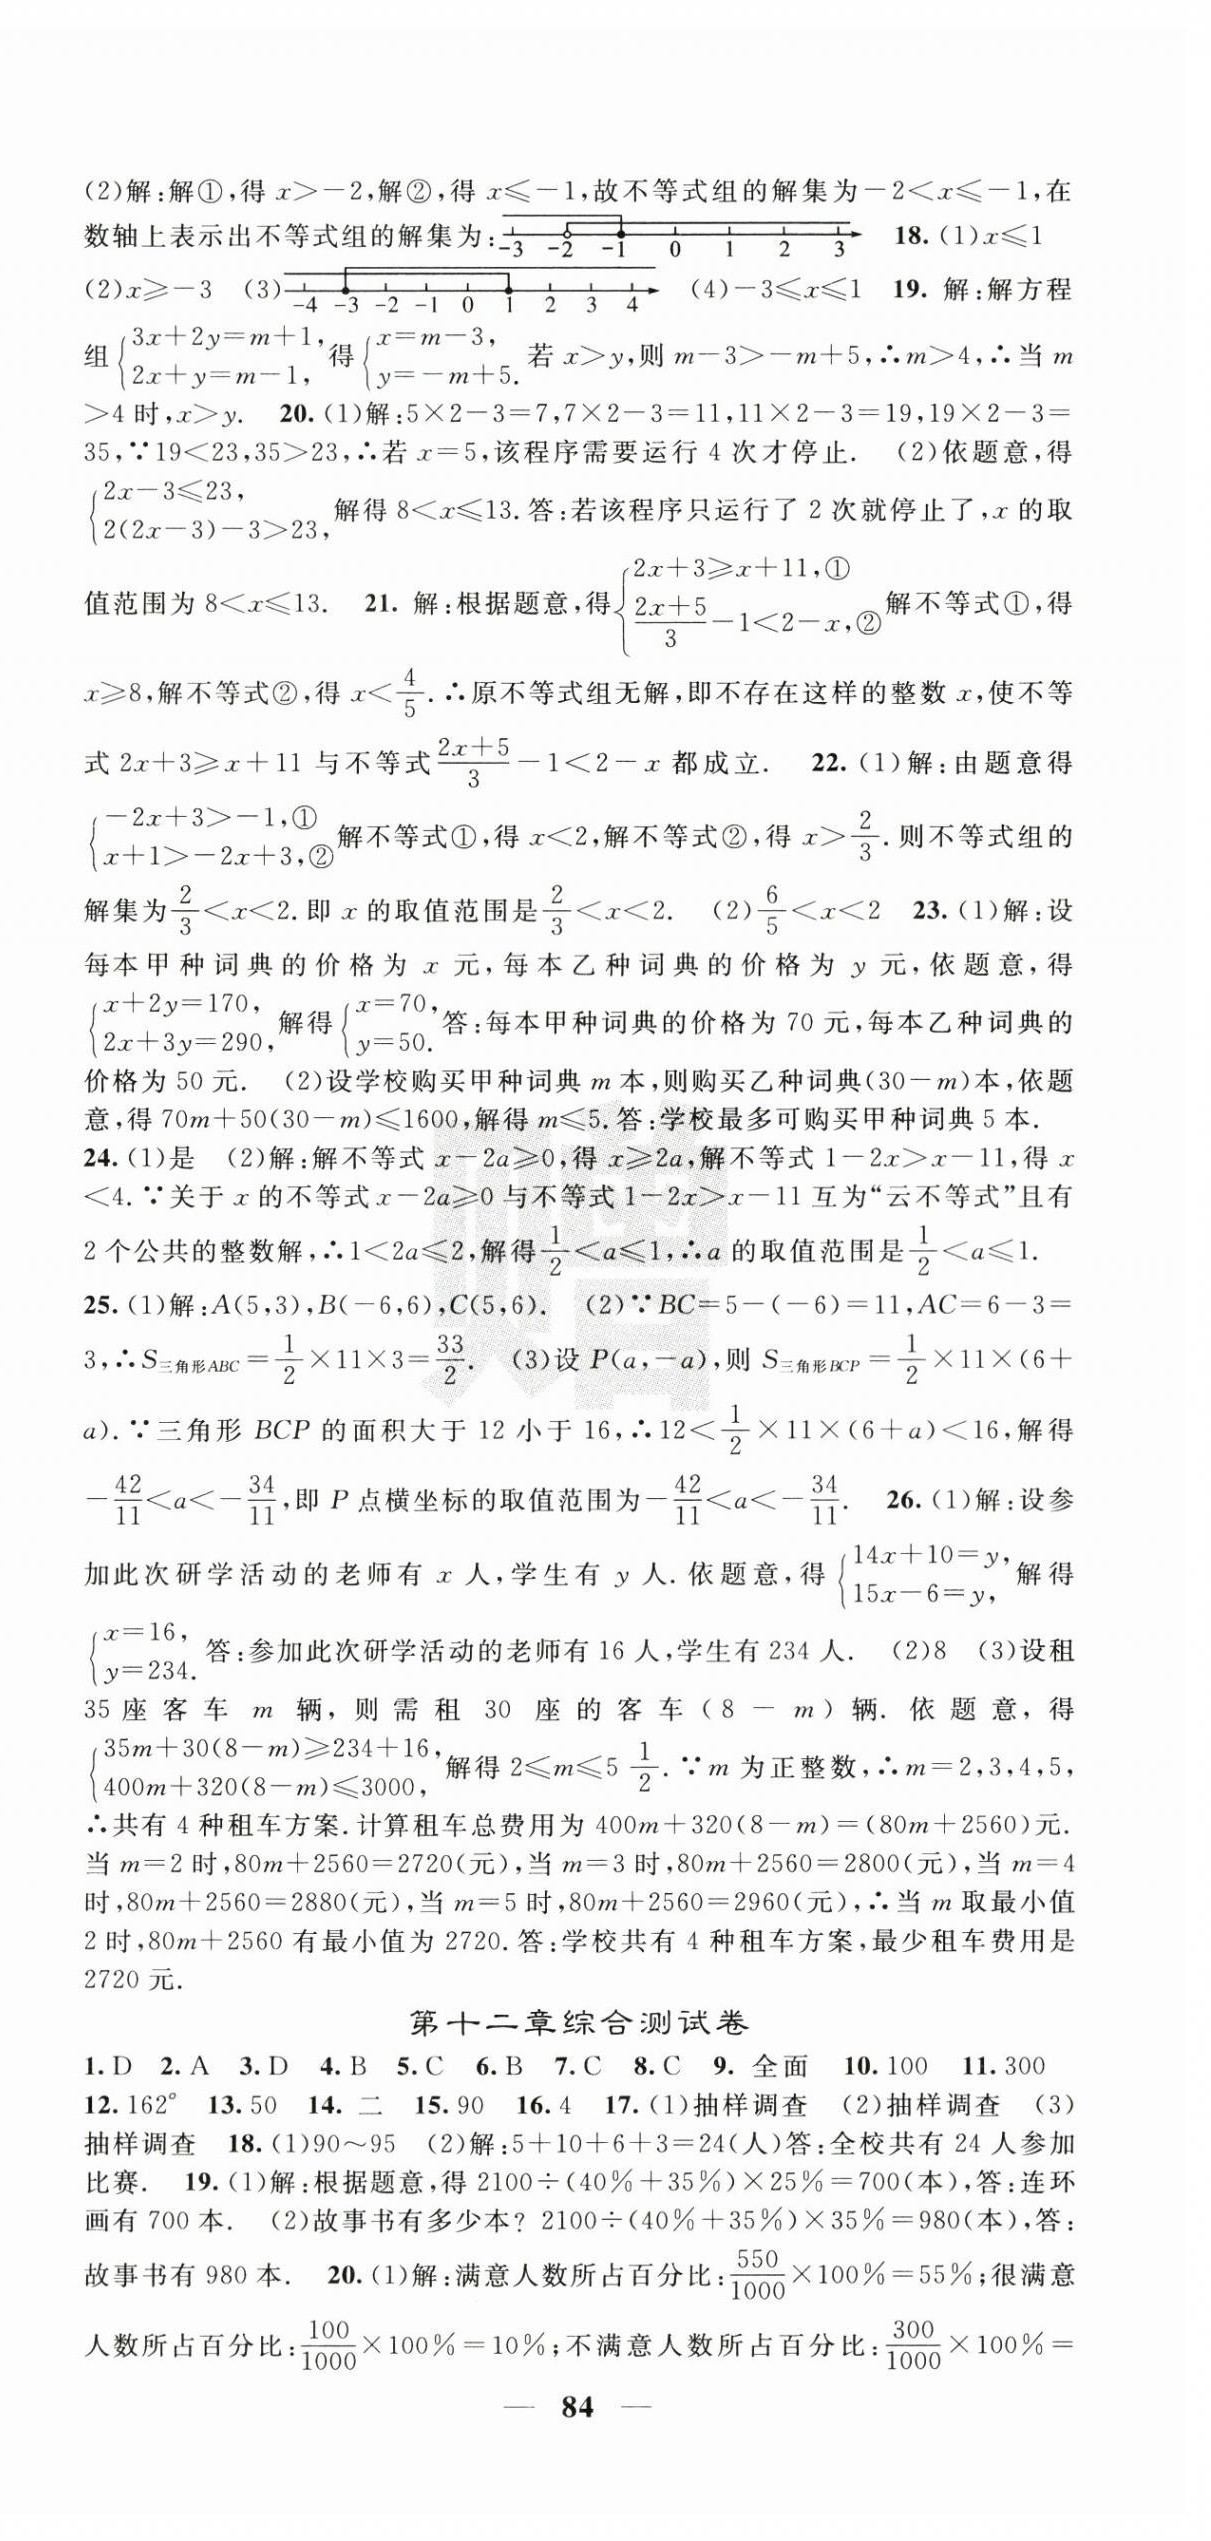 (2)解:解①,得 x>-2,解②,得 x≤-1,故不等式组的解集为-2<x≤-1,在
数轴上表示出不等式组的解集为: -3 -2 -1 0 1 2 3 18.(1)x≤1
(2)x≥-3 (3) -4 -3 -2 -1 0 1 2 3 4 (4)-3≤x≤1 19. 解:解方程
组{3x+2y=m+1, 2x+y=m-1, 得{x=m-3, y=-m+5. 若 x>y,则 m-3>-m+5,∴m>4,∴当 m
>4 时,x>y. 20.(1)解:5×2-3=7,7×2-3=11,11×2-3=19,19×2-3=
35,∵19<23,35>23,∴若 x=5,该程序需要运行 4 次才停止. (2)依题意,得
{2x-3≤23, 2(2x-3)-3>23, 解得 8<x≤13.答:若该程序只运行了 2 次就停止了,x 的取
值范围为 8<x≤13. 21. 解:根据题意,得{2x+3≥x+11,① (2x+5)/3-1<2-x,② 解不等式①,得
x≥8,解不等式②,得 x<4/5.∴原不等式组无解,即不存在这样的整数 x,使不等
式 2x+3≥x+11 与不等式(2x+5)/3-1<2-x 都成立. 22.(1)解:由题意得
{-2x+3>-1,① x+1>-2x+3,② 解不等式①,得 x<2,解不等式②,得 x>2/3.则不等式组的
解集为2/3<x<2.即 x 的取值范围是2/3<x<2. (2)6/5<x<2 23.(1)解:设
每本甲种词典的价格为 x 元,每本乙种词典的价格为 y 元,依题意,得
{x+2y=170, 2x+3y=290, 解得{x=70, y=50. 答:每本甲种词典的价格为 70 元,每本乙种词典的
价格为 50 元. (2)设学校购买甲种词典 m 本,则购买乙种词典(30-m)本,依题
意,得 70m+50(30-m)≤1600,解得 m≤5.答:学校最多可购买甲种词典 5 本.
24.(1)是 (2)解:解不等式 x-2a≥0,得 x≥2a,解不等式 1-2x>x-11,得 x
<4.∵关于 x 的不等式 x-2a≥0 与不等式 1-2x>x-11 互为“云不等式”且有
2 个公共的整数解,∴1<2a≤2,解得1/2<a≤1,∴a 的取值范围是1/2<a≤1.
25.(1)解:A(5,3),B(-6,6),C(5,6). (2)∵BC=5-(-6)=11,AC=6-3=
3,∴S三角形ABC=1/2×11×3=33/2. (3)设 P(a,-a),则 S三角形BCP=1/2×11×(6+
a).∵三角形 BCP 的面积大于 12 小于 16,∴12<1/2×11×(6+a)<16,解得
-42/11<a<-34/11,即 P 点横坐标的取值范围为-42/11<a<-34/11. 26.(1)解:设参
加此次研学活动的老师有 x 人,学生有 y 人.依题意,得{14x+10=y, 15x-6=y, 解得
{x=16, y=234. 答:参加此次研学活动的老师有 16 人,学生有 234 人. (2)8 (3)设租
35 座客车 m 辆,则需租 30 座的客车(8-m)辆.依题意,得
{35m+30(8-m)≥234+16, 400m+320(8-m)≤3000, 解得 2≤m≤5 1/2.∵m 为正整数,∴m=2,3,4,5,
∴共有 4 种租车方案.计算租车总费用为 400m+320(8-m)=(80m+2560)元.
当 m=2 时,80m+2560=2720(元),当 m=3 时,80m+2560=2800(元),当 m=4
时,80m+2560=2880(元),当 m=5 时,80m+2560=2960(元),∴当 m 取最小值
2 时,80m+2560 有最小值为 2720.答:学校共有 4 种租车方案,最少租车费用是
2720 元.
第十二章综合测试卷
1.D 2.A 3.D 4.B 5.C 6.B 7.C 8.C 9. 全面 10.100 11.300
12.162° 13.50 14. 二 15.90 16.4 17.(1)抽样调查 (2)抽样调查 (3)
抽样调查 18.(1)90~95 (2)解:5+10+6+3=24(人)答:全校共有 24 人参加
比赛. 19.(1)解:根据题意,得 2100÷(40%+35%)×25%=700(本),答:连环
画有 700 本. (2)故事书有多少本? 2100÷(40%+35%)×35%=980(本),答:
故事书有 980 本. 20.(1)解:满意人数所占百分比:550/1000×100%=55%;很满意
人数所占百分比:100/1000×100%=10%;不满意人数所占百分比:300/1000×100%=
— 84 —